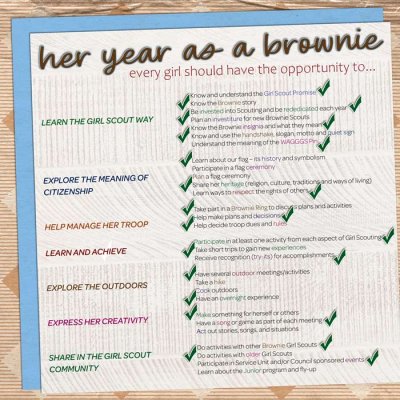 her year as a brownie
every girl should have the opportunity to...
LEARN THE GIRL SCOUT WAY
Know and understand the Girl Scout Promise
Know the Brownie story
Be invested into Scouting and be rededicated each year
Plan an investiture for new Brownie Scouts
Know the Brownie insignia and what they mean
Know and use the handshake, slogan, motto and quiet sign
Understand the meaning of the WAGGGS Pin
EXPLORE THE MEANING OF
CITIZENSHIP
Learn about our flag - its history and symbolism
Participate in a flag ceremony
Plan a flag ceremony
Share her heritage (religion, culture, traditions and ways of living)
Learn ways to respect the rights of others
HELP MANAGE HER TROOP
Take part in a Brownie Ring to discuss plans and activities
Help make plans and decisions
Help decide troop dues and rules
LEARN AND ACHIEVE
Participate in at least one activity from each aspect of Girl Scouting
Take short trips to gain new experiences
Receive recognition (try-its) for accomplishments
EXPLORE THE OUTDOORS
Have several outdoor meetings/activities
Take a hike
Cook outdoors
Have an overnight experience
EXPRESS HER CREATIVITY
Make something for herself or others
Have a song or game as part of each meeting
Act out stories, songs, and situations
SHARE IN THE GIRL SCOUT
COMMUNITY
Do activities with other Brownie Girl Scouts
Do activities with older Girl Scouts
Participate in Service Unit and/or Council sponsored events
Learn about the Junior program and fly-up